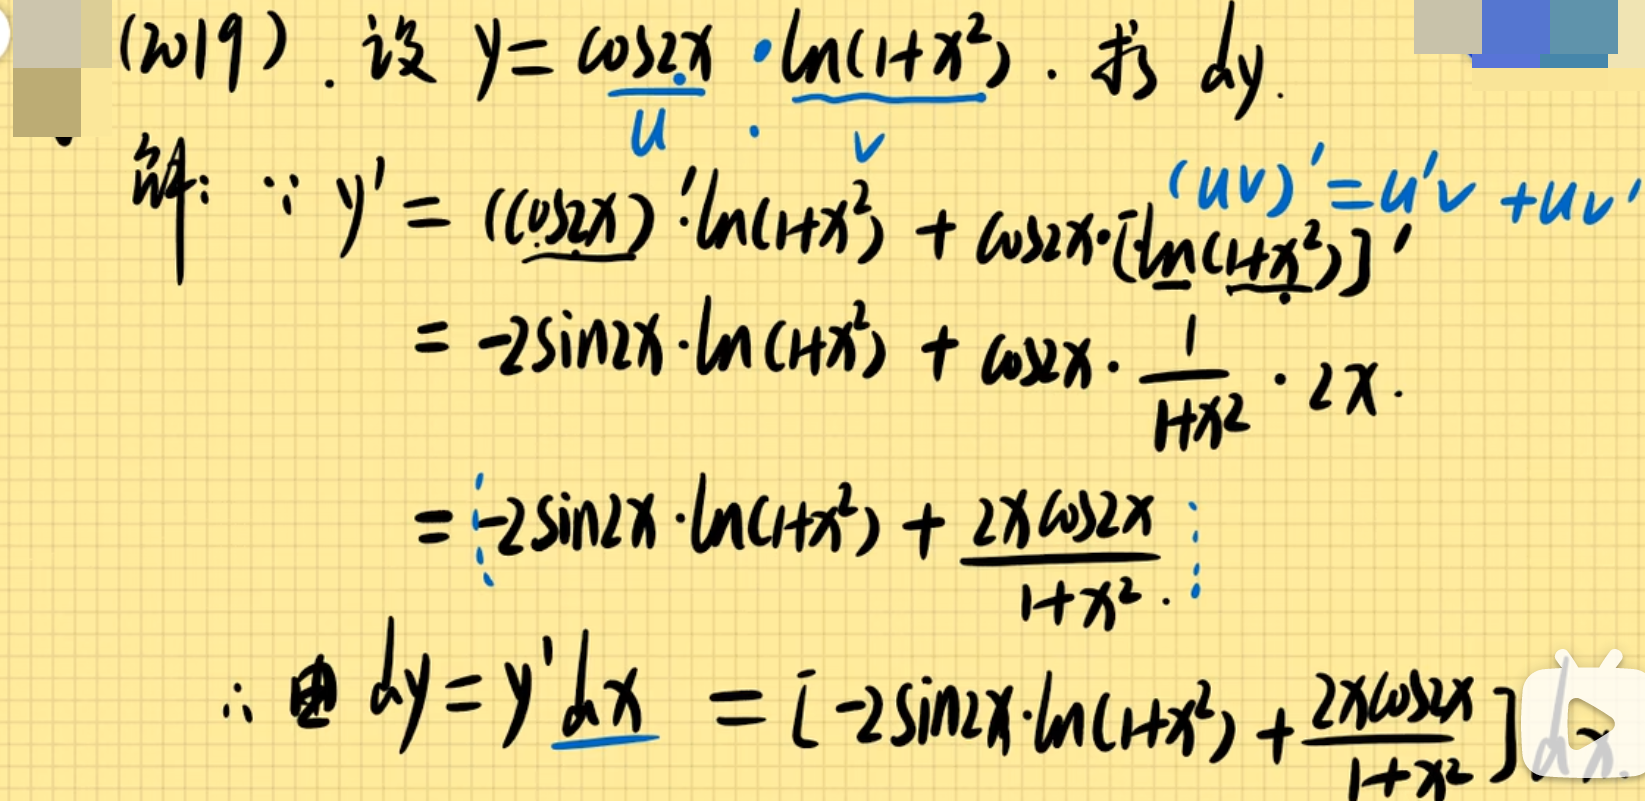 (2019). 设 y = cos2x · ln(1+x²). 求 dy.
u · v
(uv)' = u'v + uv'
解: ∵ y' = (cos2x)'·ln(1+x²) + cos2x·[ln(1+x²)]'
= -2sin2x·ln(1+x²) + cos2x · 1/(1+x²) · 2x.
= -2sin2x·ln(1+x²) + 2xcos2x/(1+x²).
∴ dy = y'dx = [-2sin2x·ln(1+x²) + 2xcos2x/(1+x²)]dx.